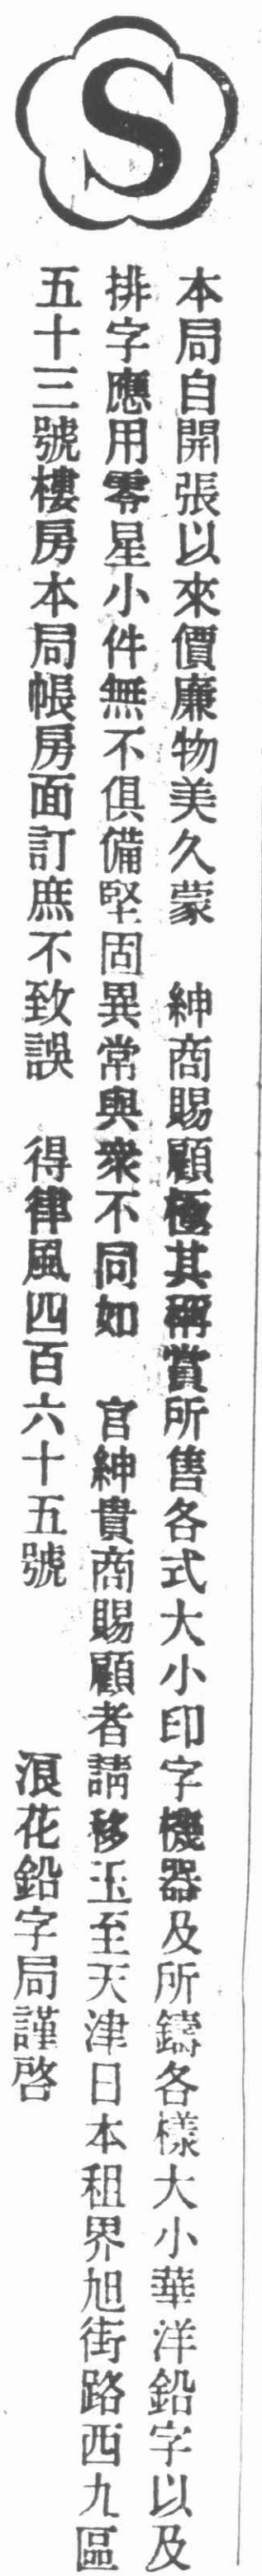 S
本局自開張以來價廉物美久蒙　紳商賜顧極其稱賞所售各式大小印字機器及所鑄各樣大小華洋鉛字以及
排字應用零星小件無不俱備堅固異常與衆不同如　官紳貴商賜顧者請移玉至天津日本租界旭街路西九區
五十三號樓房本局帳房面訂庶不致誤　得律風四百六十五號　　　浪花鉛字局謹啓